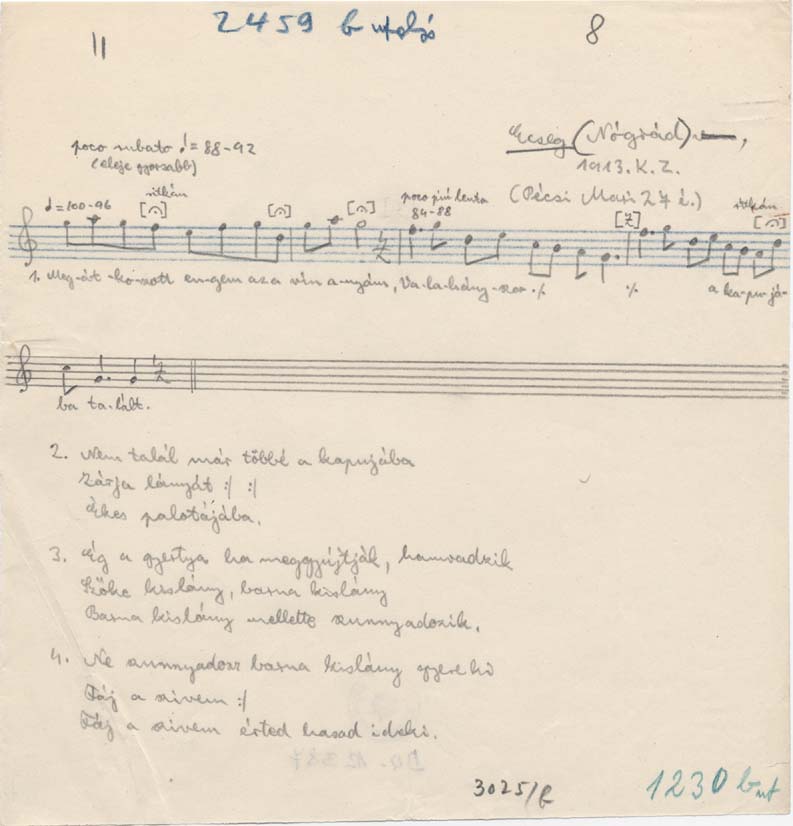 2459 b utolsó
11
8
Ecség (Nógrád)
1913. K. Z.
(Pécsi Mari 27 é.)
poco rubato ♩= 88-92
(eleje gyorsabb)
♩=100-96 ritkán
poco più lento
84-88
ritkán
1. Meg-át-ko-zott en-gem az a vén a-nyám, Va-la-hány-szor ·/. ·/. a ka-pu-já-
ba ta-lált.
2. Nem talál már többé a kapujába
Zárja lányát :/ :/
Ékes palotájába.
3. Ég a gyertya ha meggyújtják, hamvadzik
Szőke kislány, barna kislány
Barna kislány mellette szunnyadozik.
4. Ne szunnyadozz barna kislány gyere ki
Fáj a szivem :/
Fáj a szivem érted hasad ideki.
3025/b
1230 b ut